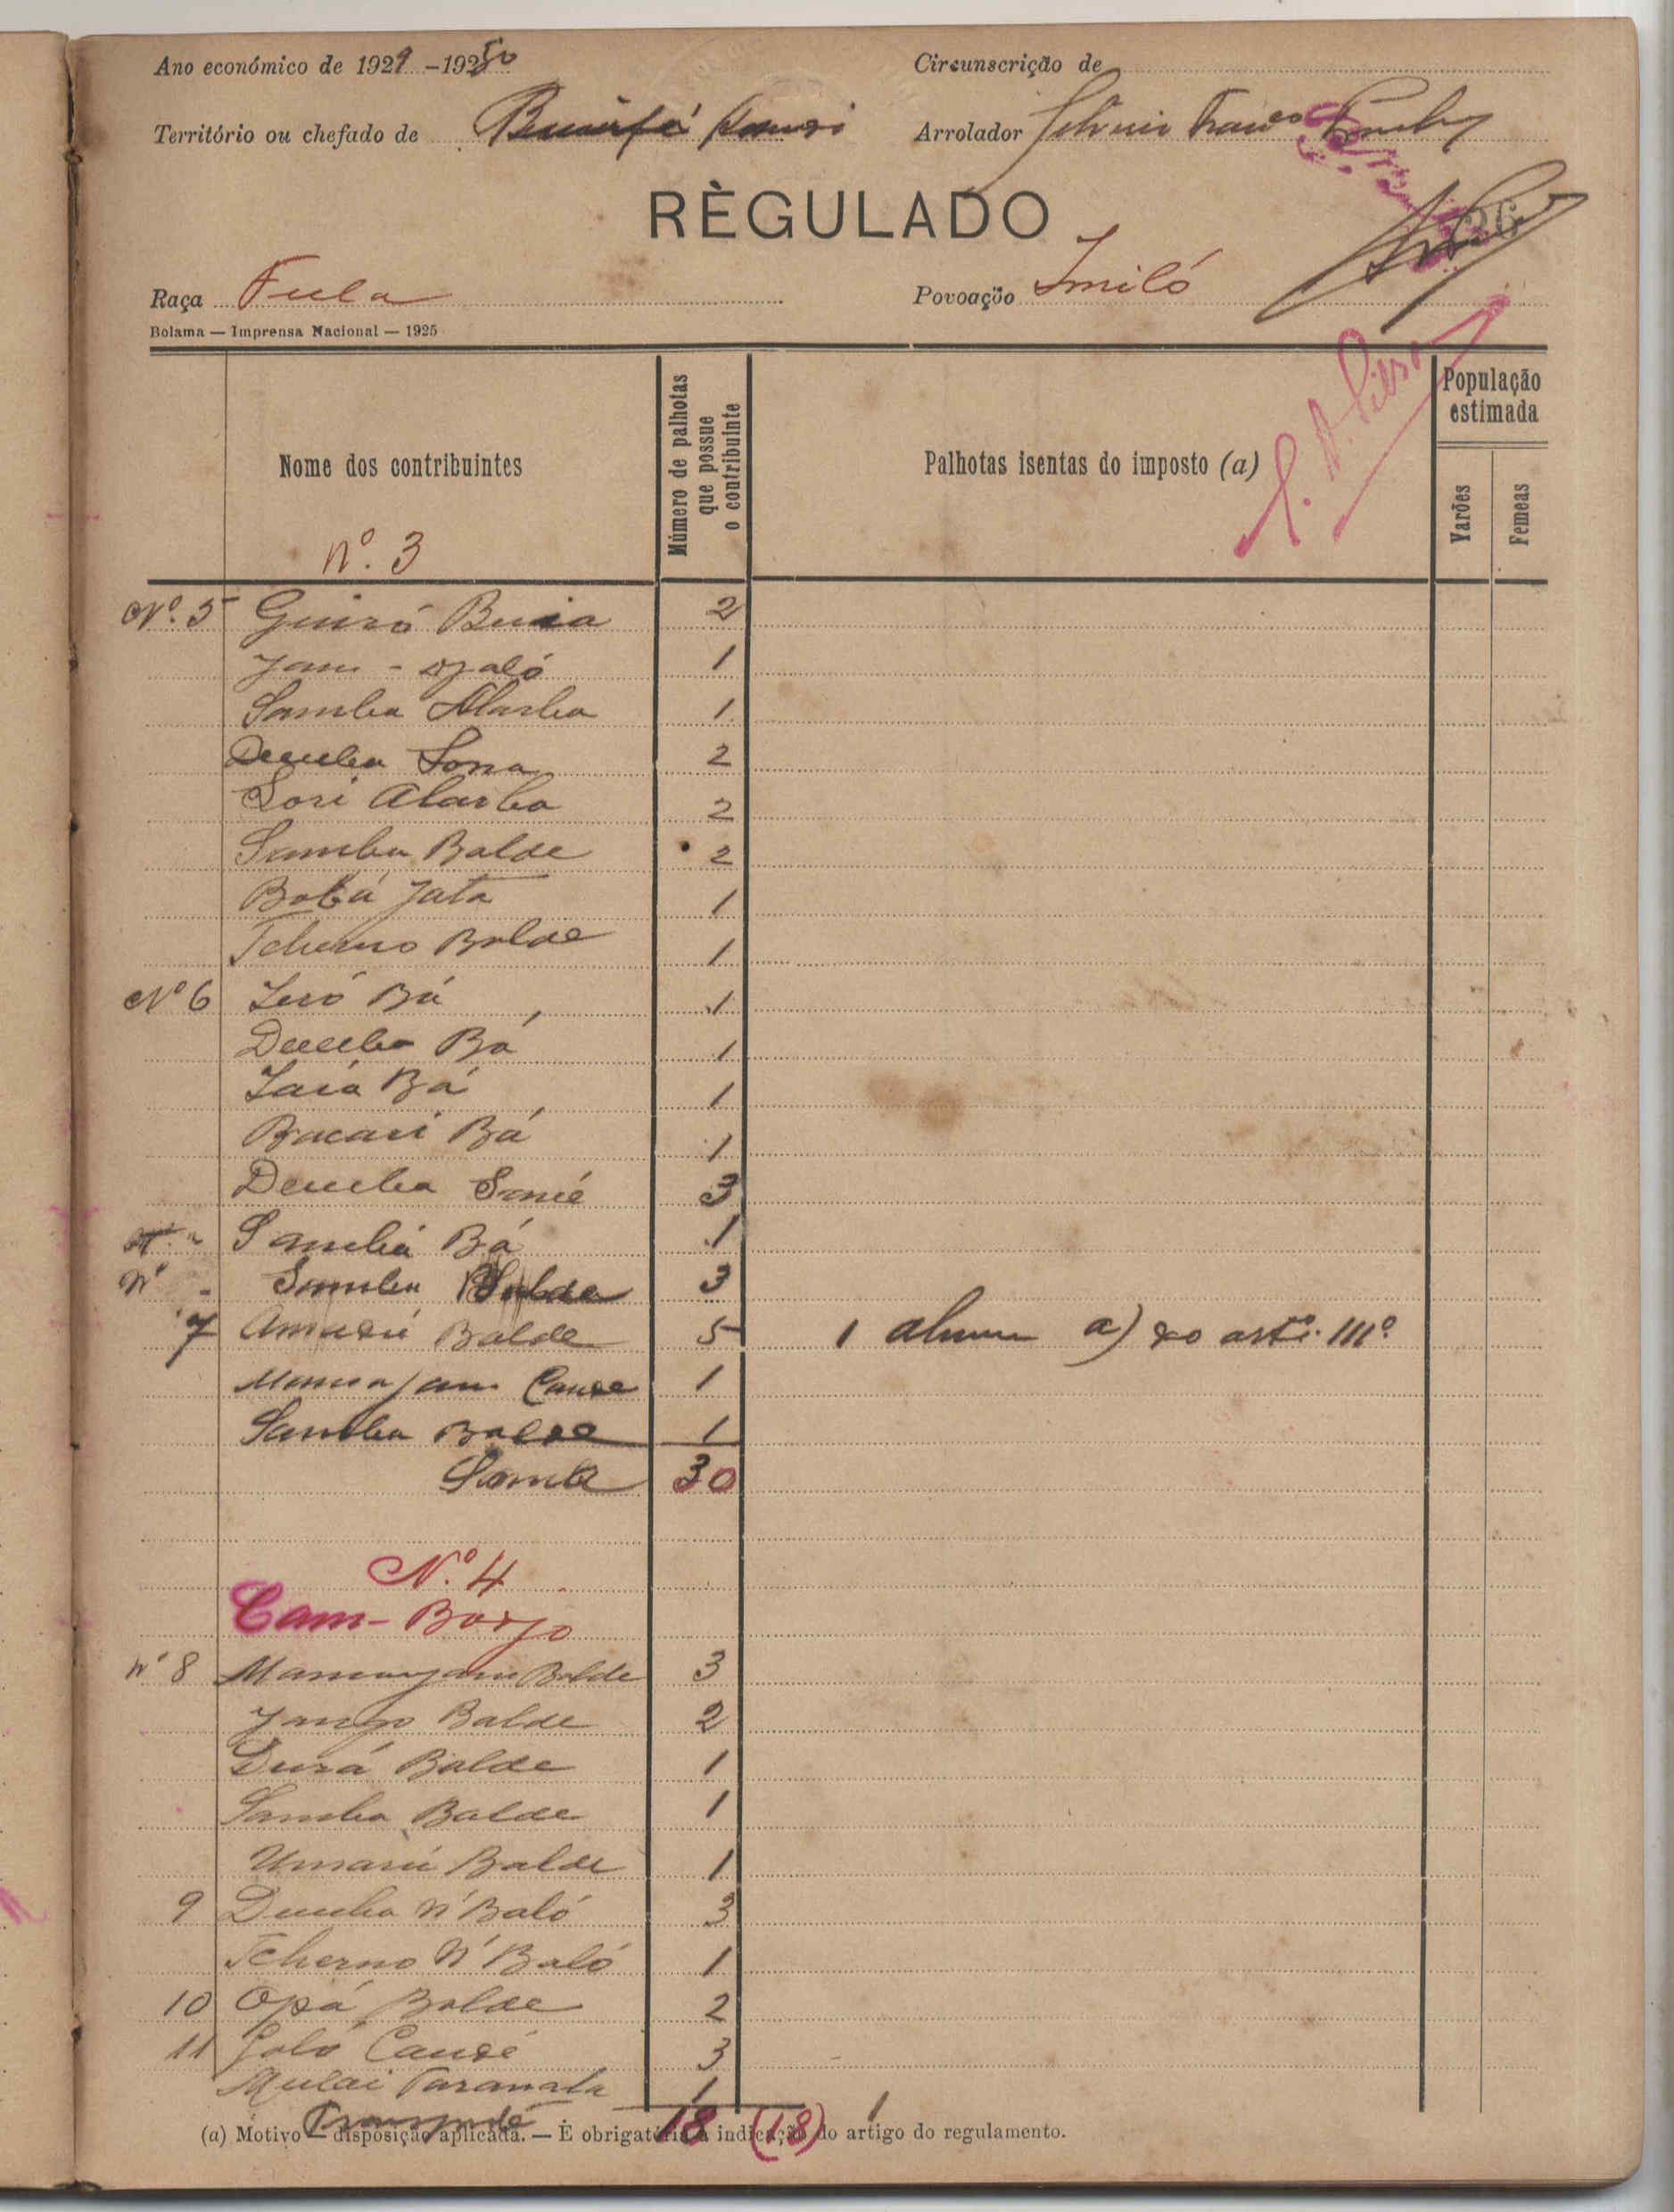 Ano económico de 1929 -1930
Circunscrição de
Território ou chefado de
Arrolador
RÈGULADO
26
Raça Fula
Povoação Imiló
Bolama — Imprensa Nacional — 1925
Nome dos contribuintes
Número de palhotas que possue o contribuinte
Palhotas isentas do imposto (a)
População estimada
Varões
Femeas
Nº. 3
Nº. 5 Guiró Buia 2
Jam - Djaló 1
Samba Alarba 1
Demba Sona 2
Sori Alarba 2
Samba Balde 2
Bobá Jata 1
Tcherno Balde 1
Nº 6 Leró Bá 1
Demba Bá 1
Iaia Bá 1
Bacari Bá 1
Demba Sané 3
Samba Bá 1
Nº Samba Balde 3
7 Amadú Balde 5 1 a) do artº. 111º
Cande 1
Samba Balde 1
Soma 30
Nº. 4
Cam-Borjo
Nº 8 Mamanjam Balde 3
Jango Balde 2
Durá Balde 1
Samba Balde 1
Umarú Balde 1
9 Demba N'Baló 3
Tcherno N'Baló 1
10 Opá Balde 2
11 Galó Candé 3
Mulai 1
18 (18) 1
(a) Motivo — disposição aplicada. — È obrigatória a indicação do artigo do regulamento.